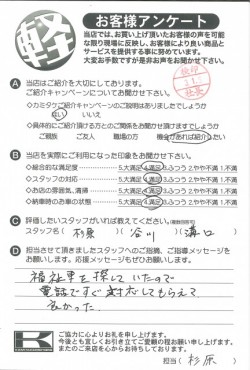 軽
お客様アンケート
当店では、お買い上げ頂いたお客様の声を可能
な限り現場に反映し、お客様により良い商品と
サービスを提供する事に努めています。
大変お手数ですが是非お声をお聞かせ下さい。
A 当店はご紹介を大切にしております。
ご紹介キャンペーンについてお聞かせ下さい。
◇カミタケご紹介キャンペーンのご説明はありましたでしょうか
はい いいえ
◇具体的にご紹介頂ける方とのご関係をお聞かせ頂けますでしょうか
ご親族 ご友人 職場の同僚 機会があれば紹介したい
B 当店を実際にご利用になった印象をお聞かせ下さい。
◇総合的な満足度 5.大満足 4.満足 3.ふつう 2.やや不満 1.不満
◇スタッフの接客 5.大満足 4.満足 3.ふつう 2.やや不満 1.不満
◇お店の雰囲気、清掃 5.大満足 4.満足 3.ふつう 2.やや不満 1.不満
◇納車時のお車の状態 5.大満足 4.満足 3.ふつう 2.やや不満 1.不満
C 評価したいスタッフがいれば教えてください。(複数回答可)
スタッフ名( 杉原 )( 谷川 )( 溝口 )
D 担当させて頂きましたスタッフへのご指摘、ご指導メッセージを
お願いします。応援メッセージもぜひお願いします。
福祉車を探していたので
電話ですぐ対応してもらえて
良かった。
K
ご協力に心よりお礼を申し上げます。
今後とも宜しくお引き立てご愛顧の程お願い申し上げます。
またのご来店を心からお待ちしております。
担当( 杉原 )